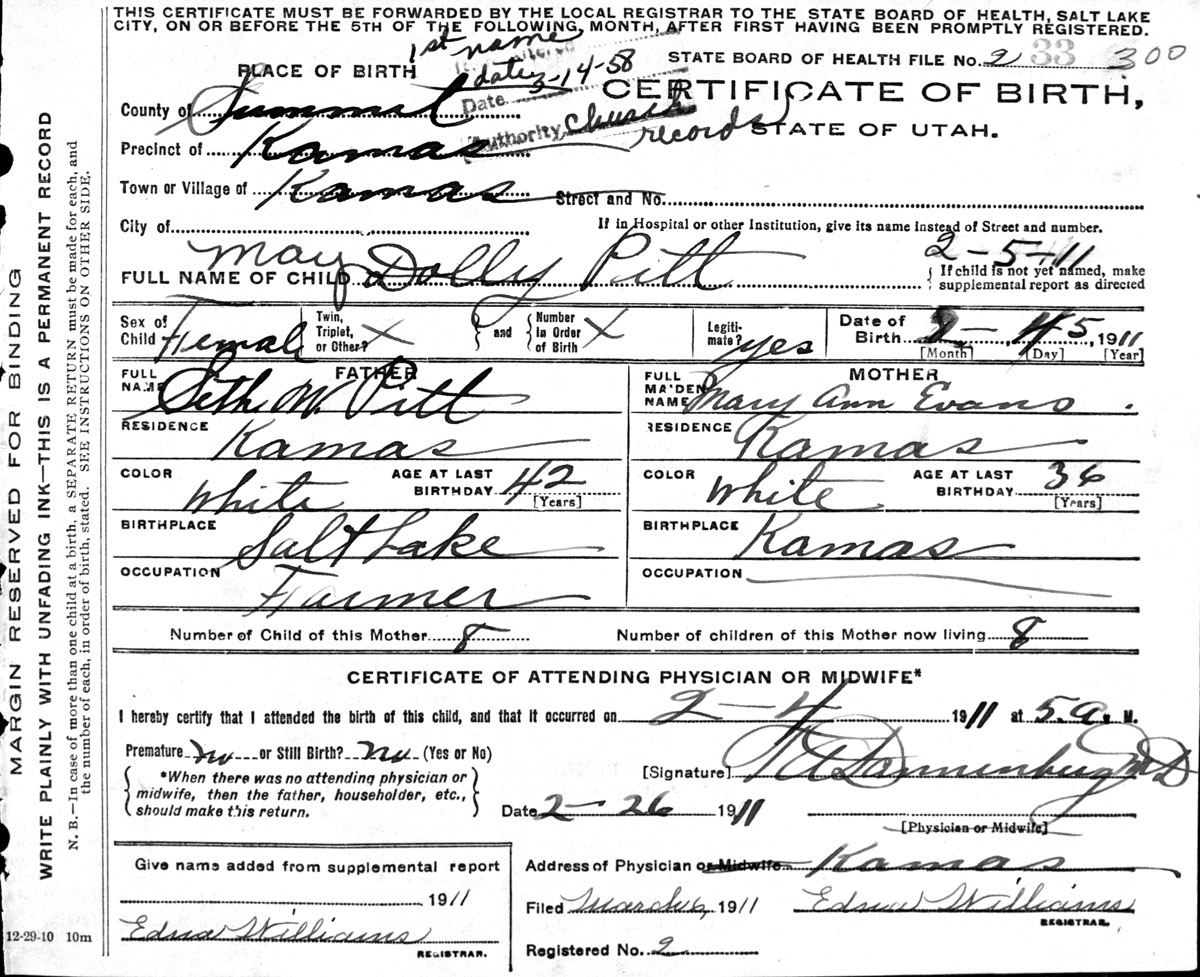 THIS CERTIFICATE MUST BE FORWARDED BY THE LOCAL REGISTRAR TO THE STATE BOARD OF HEALTH, SALT LAKE
CITY, ON OR BEFORE THE 5TH OF THE FOLLOWING MONTH, AFTER FIRST HAVING BEEN PROMPTLY REGISTERED.
1st name
STATE BOARD OF HEALTH FILE No. 2 33 300
PLACE OF BIRTH
date 3-14-58
Date
CERTIFICATE OF BIRTH,
County of Summit
Authority, Church records
STATE OF UTAH.
Precinct of Kamas
Town or Village of Kamas Street and No.
City of
If in Hospital or other Institution, give its name instead of Street and number.
May 2-5-11
FULL NAME OF CHILD Dolly Pitt
If child is not yet named, make
supplemental report as directed
Sex of Child Female
Twin, Triplet, or Other? X
and
Number in Order of Birth X
Legiti-mate? yes
Date of Birth 2-45, 1911
[Month] [Day] [Year]
FATHER
FULL NAME Sethe W. Pitt
RESIDENCE Kamas
COLOR White AGE AT LAST BIRTHDAY 42
[Years]
BIRTHPLACE Salt Lake
OCCUPATION Farmer
MOTHER
FULL MAIDEN NAME Mary Ann Evans
RESIDENCE Kamas
COLOR White AGE AT LAST BIRTHDAY 36
[Years]
BIRTHPLACE Kamas
OCCUPATION
Number of Child of this Mother 8 Number of children of this Mother now living 8
CERTIFICATE OF ATTENDING PHYSICIAN OR MIDWIFE*
I hereby certify that I attended the birth of this child, and that it occurred on 2-4 1911 at 5 a. M.
Premature no or Still Birth? no (Yes or No)
*When there was no attending physician or
midwife, then the father, householder, etc.,
should make this return.
[Signature] Dannenberg MD
Date 2-26 1911
[Physician or Midwife]
Give name added from supplemental report
1911
Edna Williams
REGISTRAR.
Address of Physician or Midwife Kamas
Filed March 6, 1911 Edna Williams
REGISTRAR.
Registered No. 2
12-29-10 10m
MARGIN RESERVED FOR BINDING
WRITE PLAINLY WITH UNFADING INK—THIS IS A PERMANENT RECORD
N. B.—In case of more than one child at a birth, a SEPARATE RETURN must be made for each, and
the number of each, in order of birth, stated. SEE INSTRUCTIONS ON OTHER SIDE.